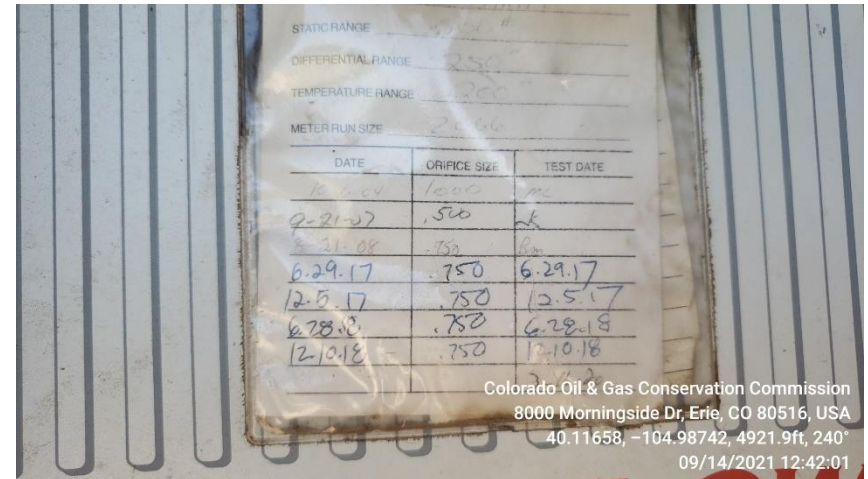 STATIC RANGE
DIFFERENTIAL RANGE 250"
TEMPERATURE RANGE 200
METER RUN SIZE 2.066
DATE ORIFICE SIZE TEST DATE
1.000 mc
9-21-07 .500
8-21-08 .750
6.29.17 .750 6.29.17
12.5.17 .750 12.5.17
6.28.18 .750 6.28.18
12.10.18 .750 12.10.18
Colorado Oil & Gas Conservation Commission
8000 Morningside Dr, Erie, CO 80516, USA
40.11658, -104.98742, 4921.9ft, 240°
09/14/2021 12:42:01